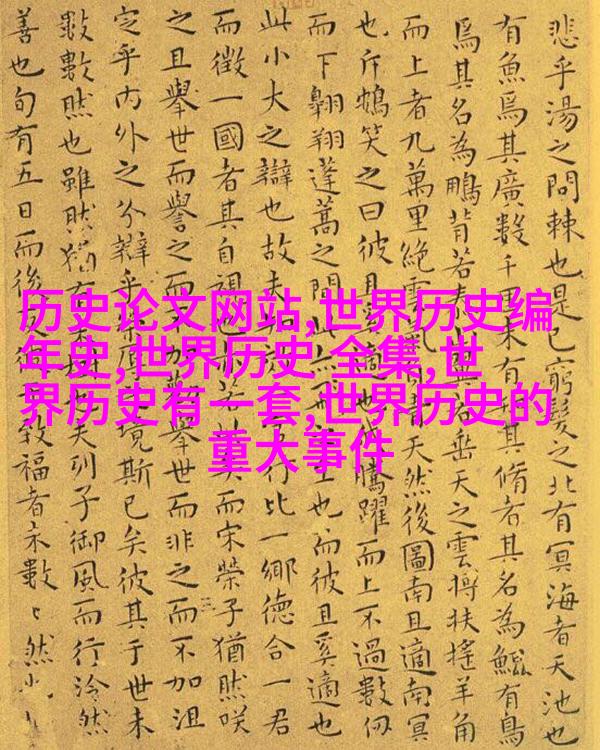 悲乎湯之問棘也是已窮髮之北有冥海者天池也
有魚焉其廣數千里未有其脩者其名為鯤有鳥
焉其名為鵬背若泰山翼若垂天之雲摶扶搖羊角
而上者九萬里絕雲氣青天然後圖南且適南冥
也斥鴳笑之曰彼且奚適也騰躍而上不過數仞
而下翱翔蓬蒿之間此亦至也而彼且奚適也
此小大之辯也故夫知一官行比一鄉德合一君
而徵一國者其自視若此矣而宋榮子猶然咲
之且舉世而譽之而不加勸舉世而非之而不加沮
定乎內外之分辯乎榮辱之境斯已矣彼其于世未
數數然也雖然猶有未樹也夫列子御風而行泠然
善也旬有五日而後反彼致福者未數〻然也
历史论文网站,世界历史编
年史,世界历史 全集,世
界历史有一套,世界历史的
重大事件